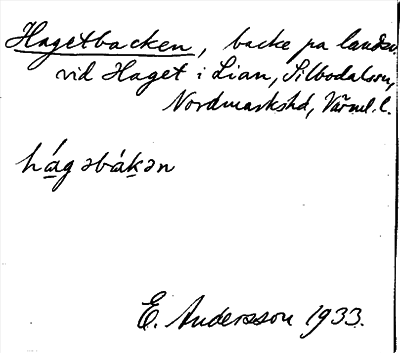 Hagetbacken, backe på landsv.
vid Haget i Lian, Silbodals sn,
Nordmarks hd, Värml. l.
hágəbákən
E. Andersson 1933.